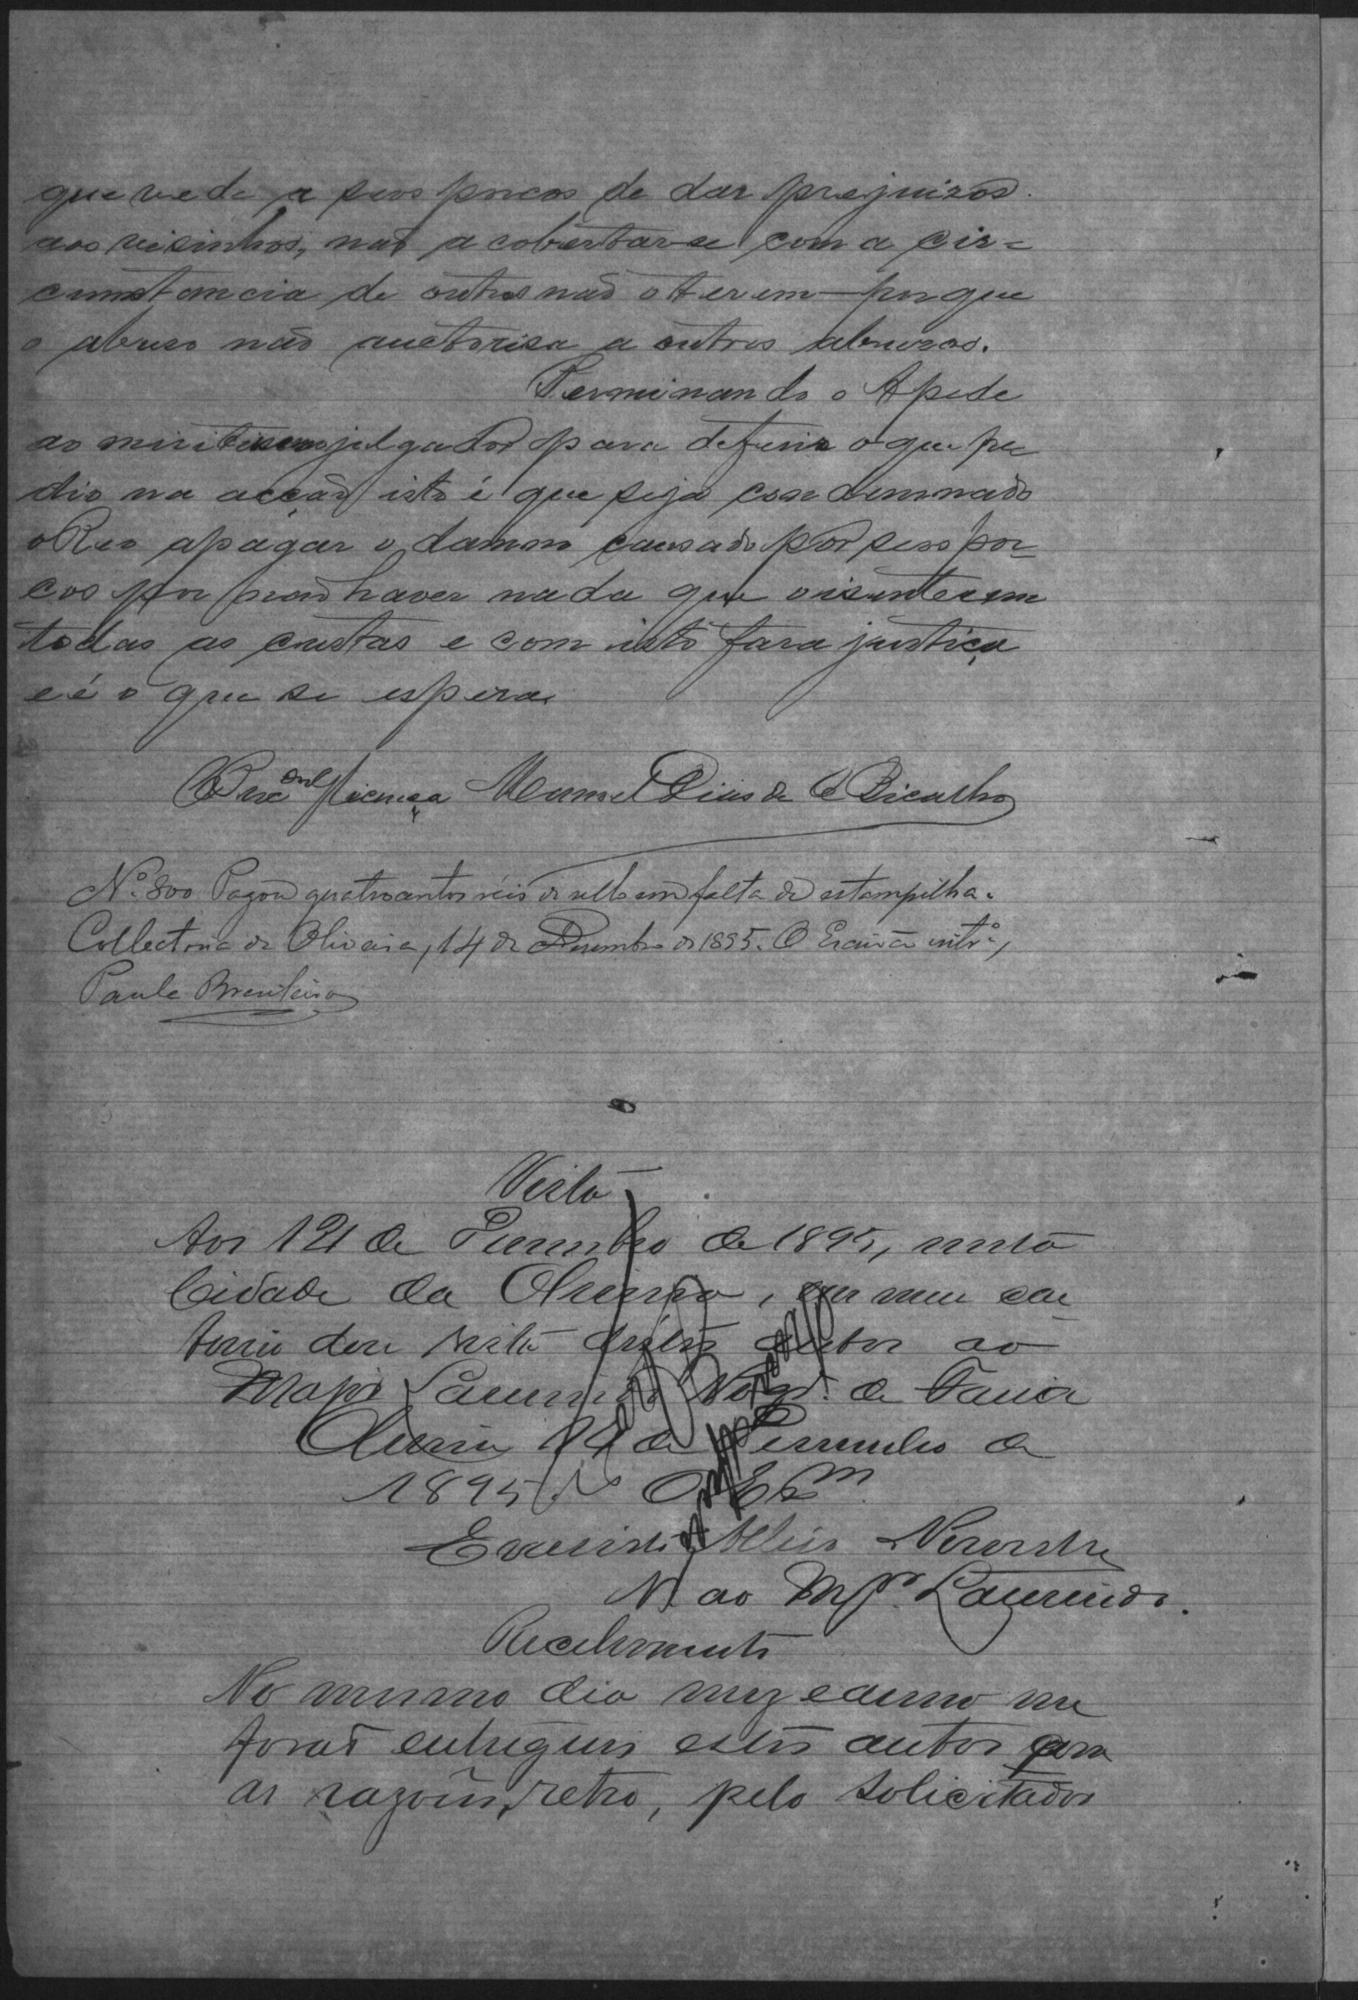 que vede a seos porcos de dar prejuizos
aos visinhos, não acobertar-se com a cir=
cumstancia de outros não o terem - porque
o abuso não auctorisa a outros abuzos.
Terminando o A pede
ao meritissimo julgador para deferir o que pe
dio na acção isto é que seja condemnado
o Reo a pagar o damno causado por seos por=
cos por não haver nada que o isente em
todas as custas e com isto fara justiça
e é o que se espera
Manoel Dias de Bicalho
Nº 800 Pagou quatrocentos réis de sello em falta de estampilha.
Collectoria de Oliveira, 14 de Dezembro de 1895. O Escrivão intrº,
Paula Brasileiro
Vista
Aos 14 de Dezembro de 1895, nesta
Cidade da Oliveira, em meu car
torio dou vista destes autos ao
Major Laurindo de Faria
Oliveira 14 de Dezembro de
1895. O Esc.m
Evaristo
Vº ao Mjr. Laurindo.
Recebimento
No mesmo dia mez e anno me
forão entregues estes autos com
as razões, retro, pelo solicitador